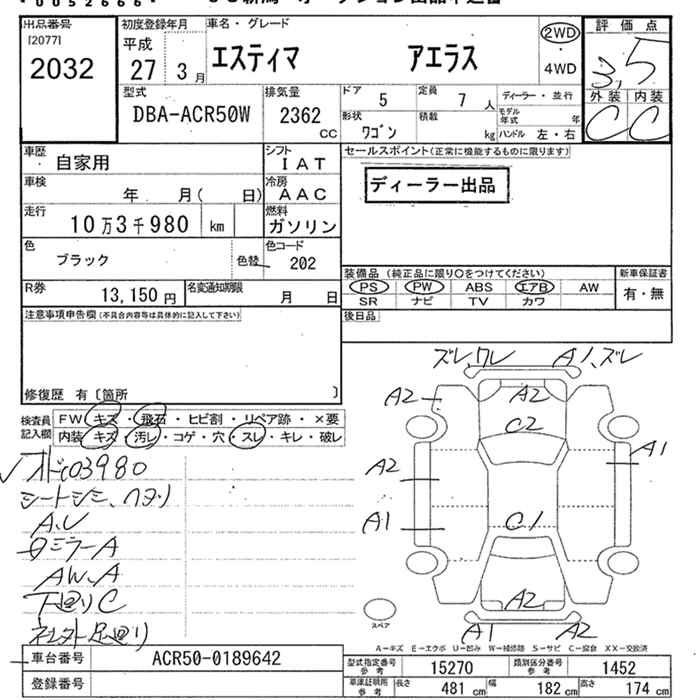 出品番号 初度登録年月 車名・グレード 評価点
[2077] 平成 2WD
2032 27 3月 エスティマ アエラス ・ 3.5
4WD
型式 排気量 ドア 5 定員 7人 ディーラー・並行 外装 内装
DBA-ACR50W 2362 cc 形状 ワゴン 積載 kg モデル年式 年 C C
ハンドル 左・右
車歴 自家用 シフト IAT セールスポイント(正常に機能するものに限ります)
車検 年 月( 日) 冷房 AAC ディーラー出品
走行 10万3千980 km 燃料 ガソリン
色 ブラック 色替 色コード 202
装備品(純正品に限り○をつけてください) 新車保証書
R券 13,150円 名変通知期限 月 日 PS PW ABS エアB AW 有・無
SR ナビ TV カワ
注意事項申告欄(不具合内容等は具体的に記入して下さい) 後日品
修復歴 有〔箇所 〕
ズレ、ワレ A1、ズレ
検査員 FW キズ・飛石・ヒビ割・リペア跡・×要 A2 A2
記入欄 内装 キズ・汚レ・コゲ・穴・スレ・キレ・破レ C2
A1
オド103980 A2
シートシミ、ヘタリ
A.U A1 C1
ミラーA
AW、A
下廻りC A2
スペア
社外足廻り A1 A2
A-キズ E-エクボ U-凹み W-補修跡 S-サビ C-腐食 XX-交換済
車台番号 ACR50-0189642 型式指定番号 参考 15270 類別区分番号 参考 1452
登録番号 車庫証明用 参考 長さ 481cm 幅 182cm 高さ 174cm